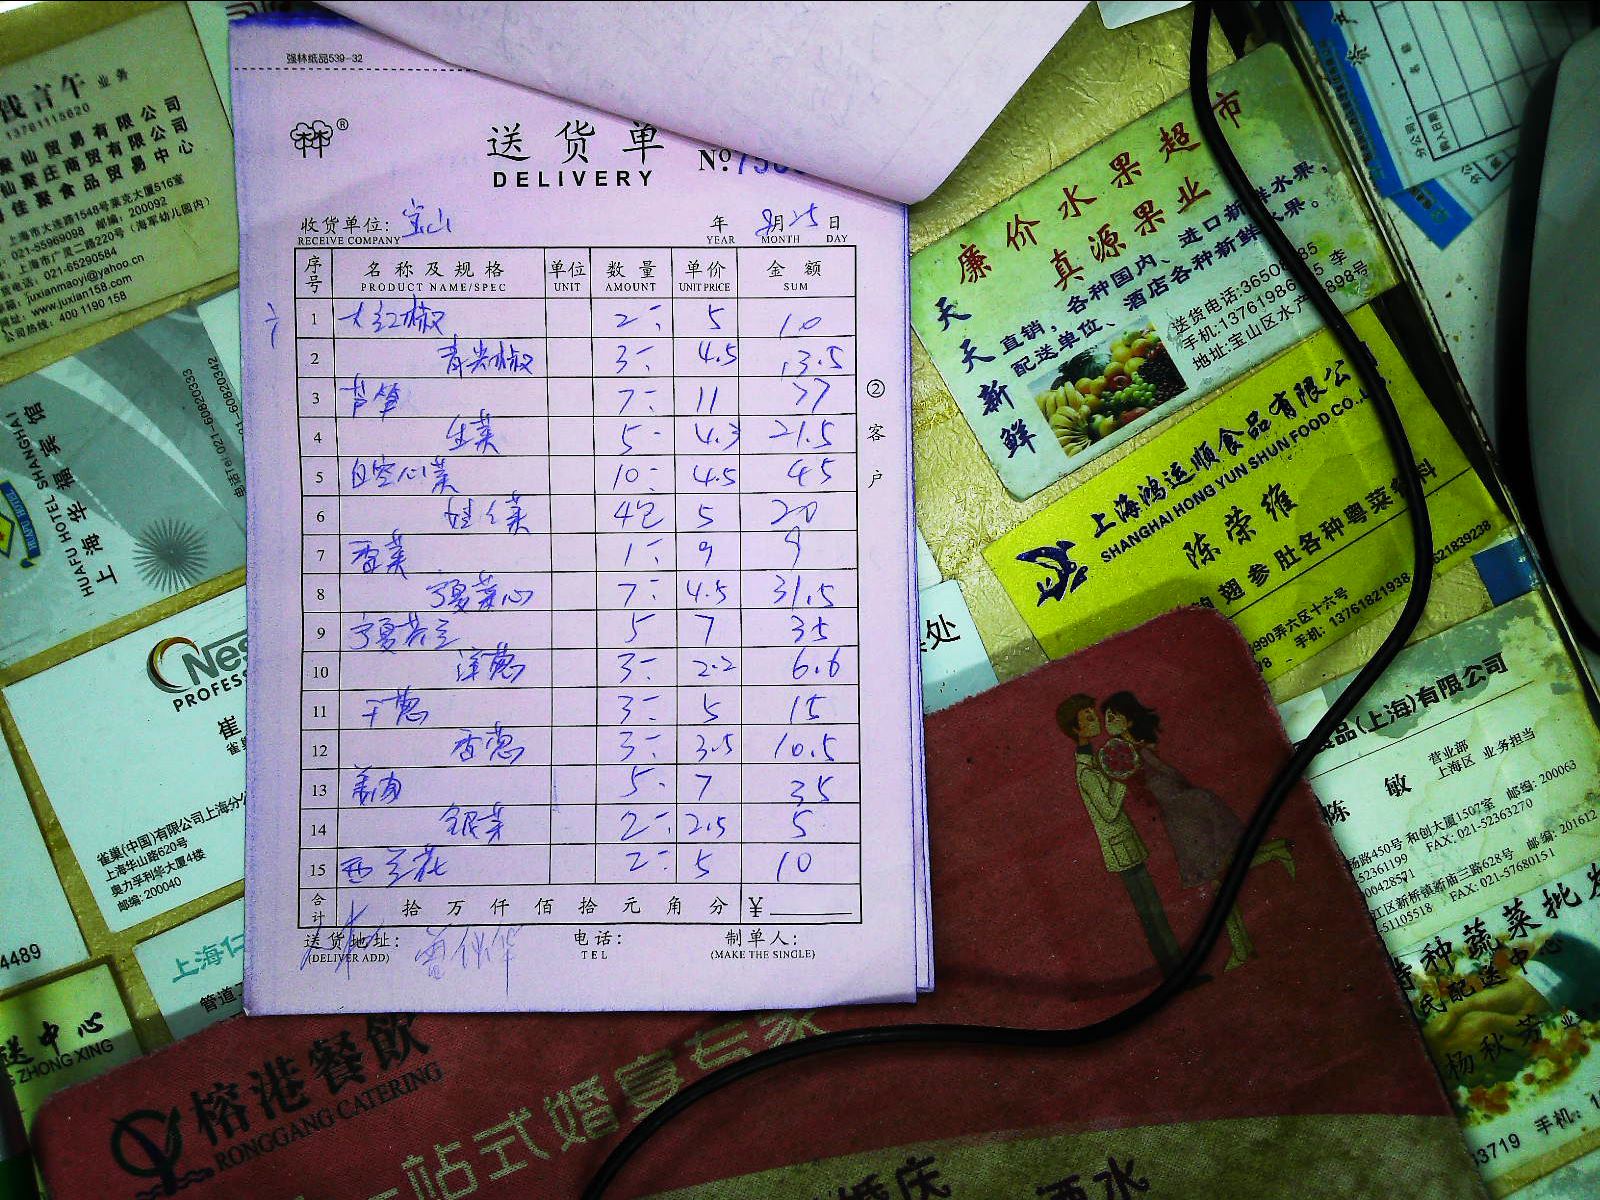 强林纸品539-32
送货单
DELIVERY
№
收货单位: 宝山
RECEIVE COMPANY
年 8月25日
YEAR MONTH DAY
序号 名称及规格 单位 数量 单价 金额
PRODUCT NAME/SPEC UNIT AMOUNT UNIT PRICE SUM
1 大红椒 2 5 10
2 青尖椒 3 4.5 13.5
3 芦笋 7 11 77
4 生菜 5 4.3 21.5
5 白空心菜 10 4.5 45
6 娃娃菜 4包 5 20
7 香菜 1 9 9
8 宁夏菜心 7 4.5 31.5
9 宁夏芥兰 5 7 35
10 洋葱 3 2.2 6.6
11 干葱 3 5 15
12 香葱 3 3.5 10.5
13 5 7 35
14 银芽 2 2.5 5
15 西兰花 2 5 10
合计 拾万仟佰拾元角分 ¥
送货地址: 电话: 制单人:
(DELIVER ADD) TEL (MAKE THE SINGLE)
②客户
钱言午 业务
13761115620
聚仙贸易有限公司
仙聚庄商贸有限公司
佳聚食品贸易中心
上海市大连路1548号莱克大厦516室
021-55969098 邮编: 200092
上海市广灵二路220号 (海军幼儿园内)
电话: 021-65290584
juxianmaoyi@yahoo.cn
www.juxian158.com
公司热线: 400 1190 158
上海华馥酒店
HUAFU HOTEL SHANGHAI
电话Tel:021-60820333
021-60820342
Nes
PROFESS
崔
雀巢
雀巢(中国)有限公司上海分公
上海华山路620号
奥力孚利华大厦4楼
邮编: 200040
4489
上海仁
管道
送中心
ZHONG XING
廉价水果超市
真源果业
天天新鲜
直销, 各种国内、进口新鲜水果,
配送单位、酒店各种新鲜水果。
送货电话:3650
手机:13761986
李
地址:宝山区水产
898号
上海鸿运顺食品有限公
SHANGHAI HONG YUN SHUN FOOD CO.,
陈荣雍
翅参肚各种粤菜
990弄六区十六号
手机: 13761821938
621839238
处
食品(上海)有限公司
陈敏
营业部
上海区 业务担当
场路450号 和创大厦1507室 邮编: 200063
52361199 FAX: 021-52363270
江区新桥镇新庙三路628号 邮编: 201612
51105518 FAX: 021-57680151
特种蔬菜批发
民配送中心
杨秋芳 业
33719 手机:
榕港餐飲
RONGGANG CATERING
一站式婚宴专家
婚庆
酒水